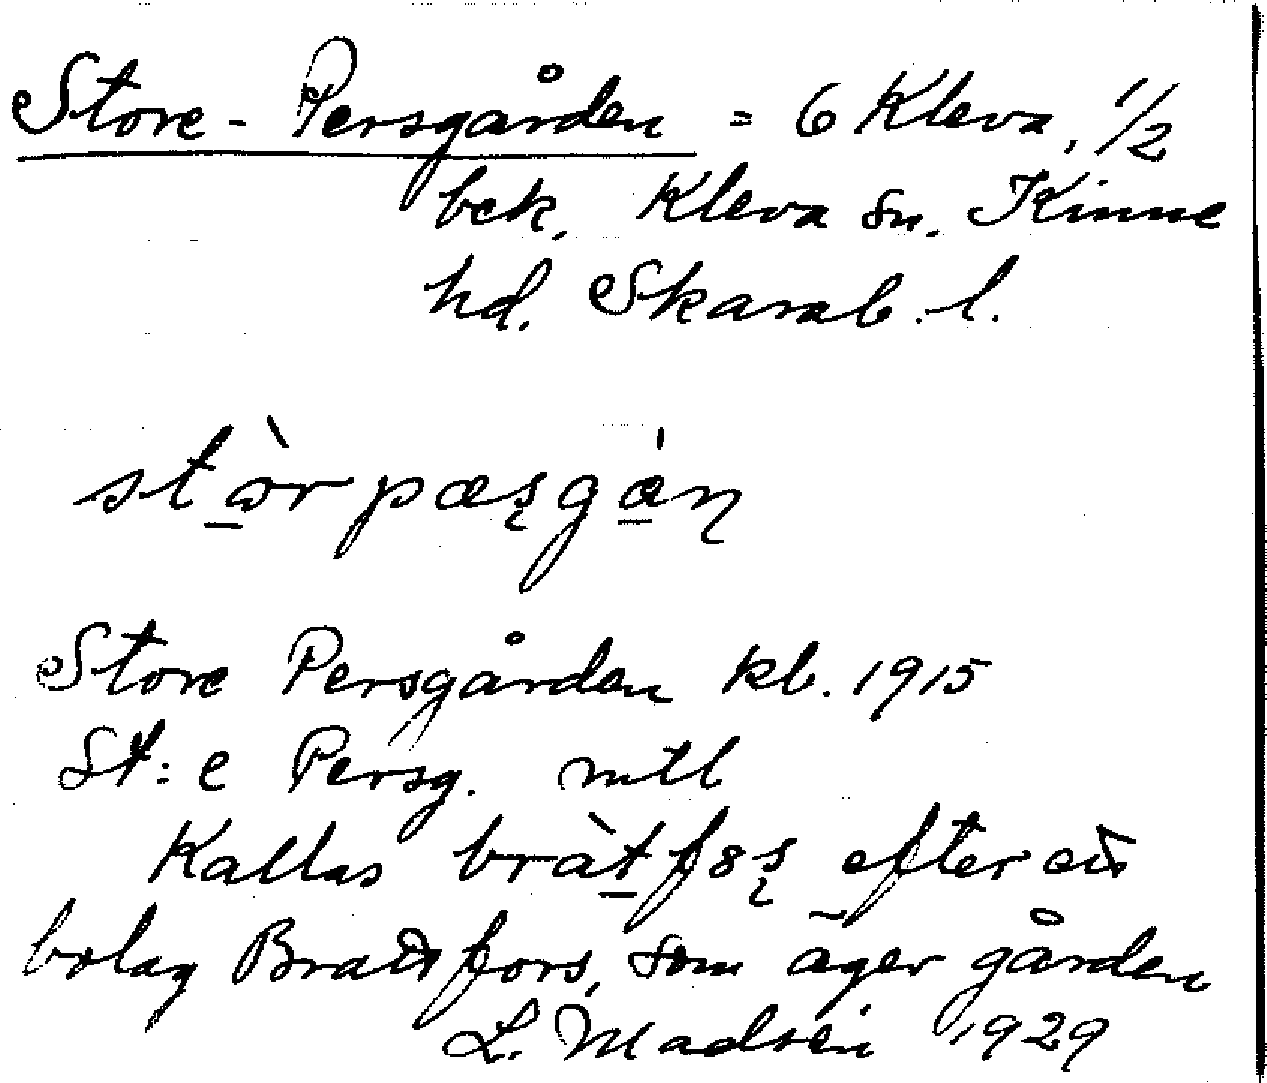 Store-Persgården = 6 Kleva, 1/2
bek. Kleva sn. Kinne
hd. Skarab. l.
stɷ̀r pæʂgáɳ
Store Persgården kb. 1915
St:e Persg. mtl
Kallas bràt̲fɵʂ efter ett
bolag Brattfors, som äger gården
L. Madsén 1929